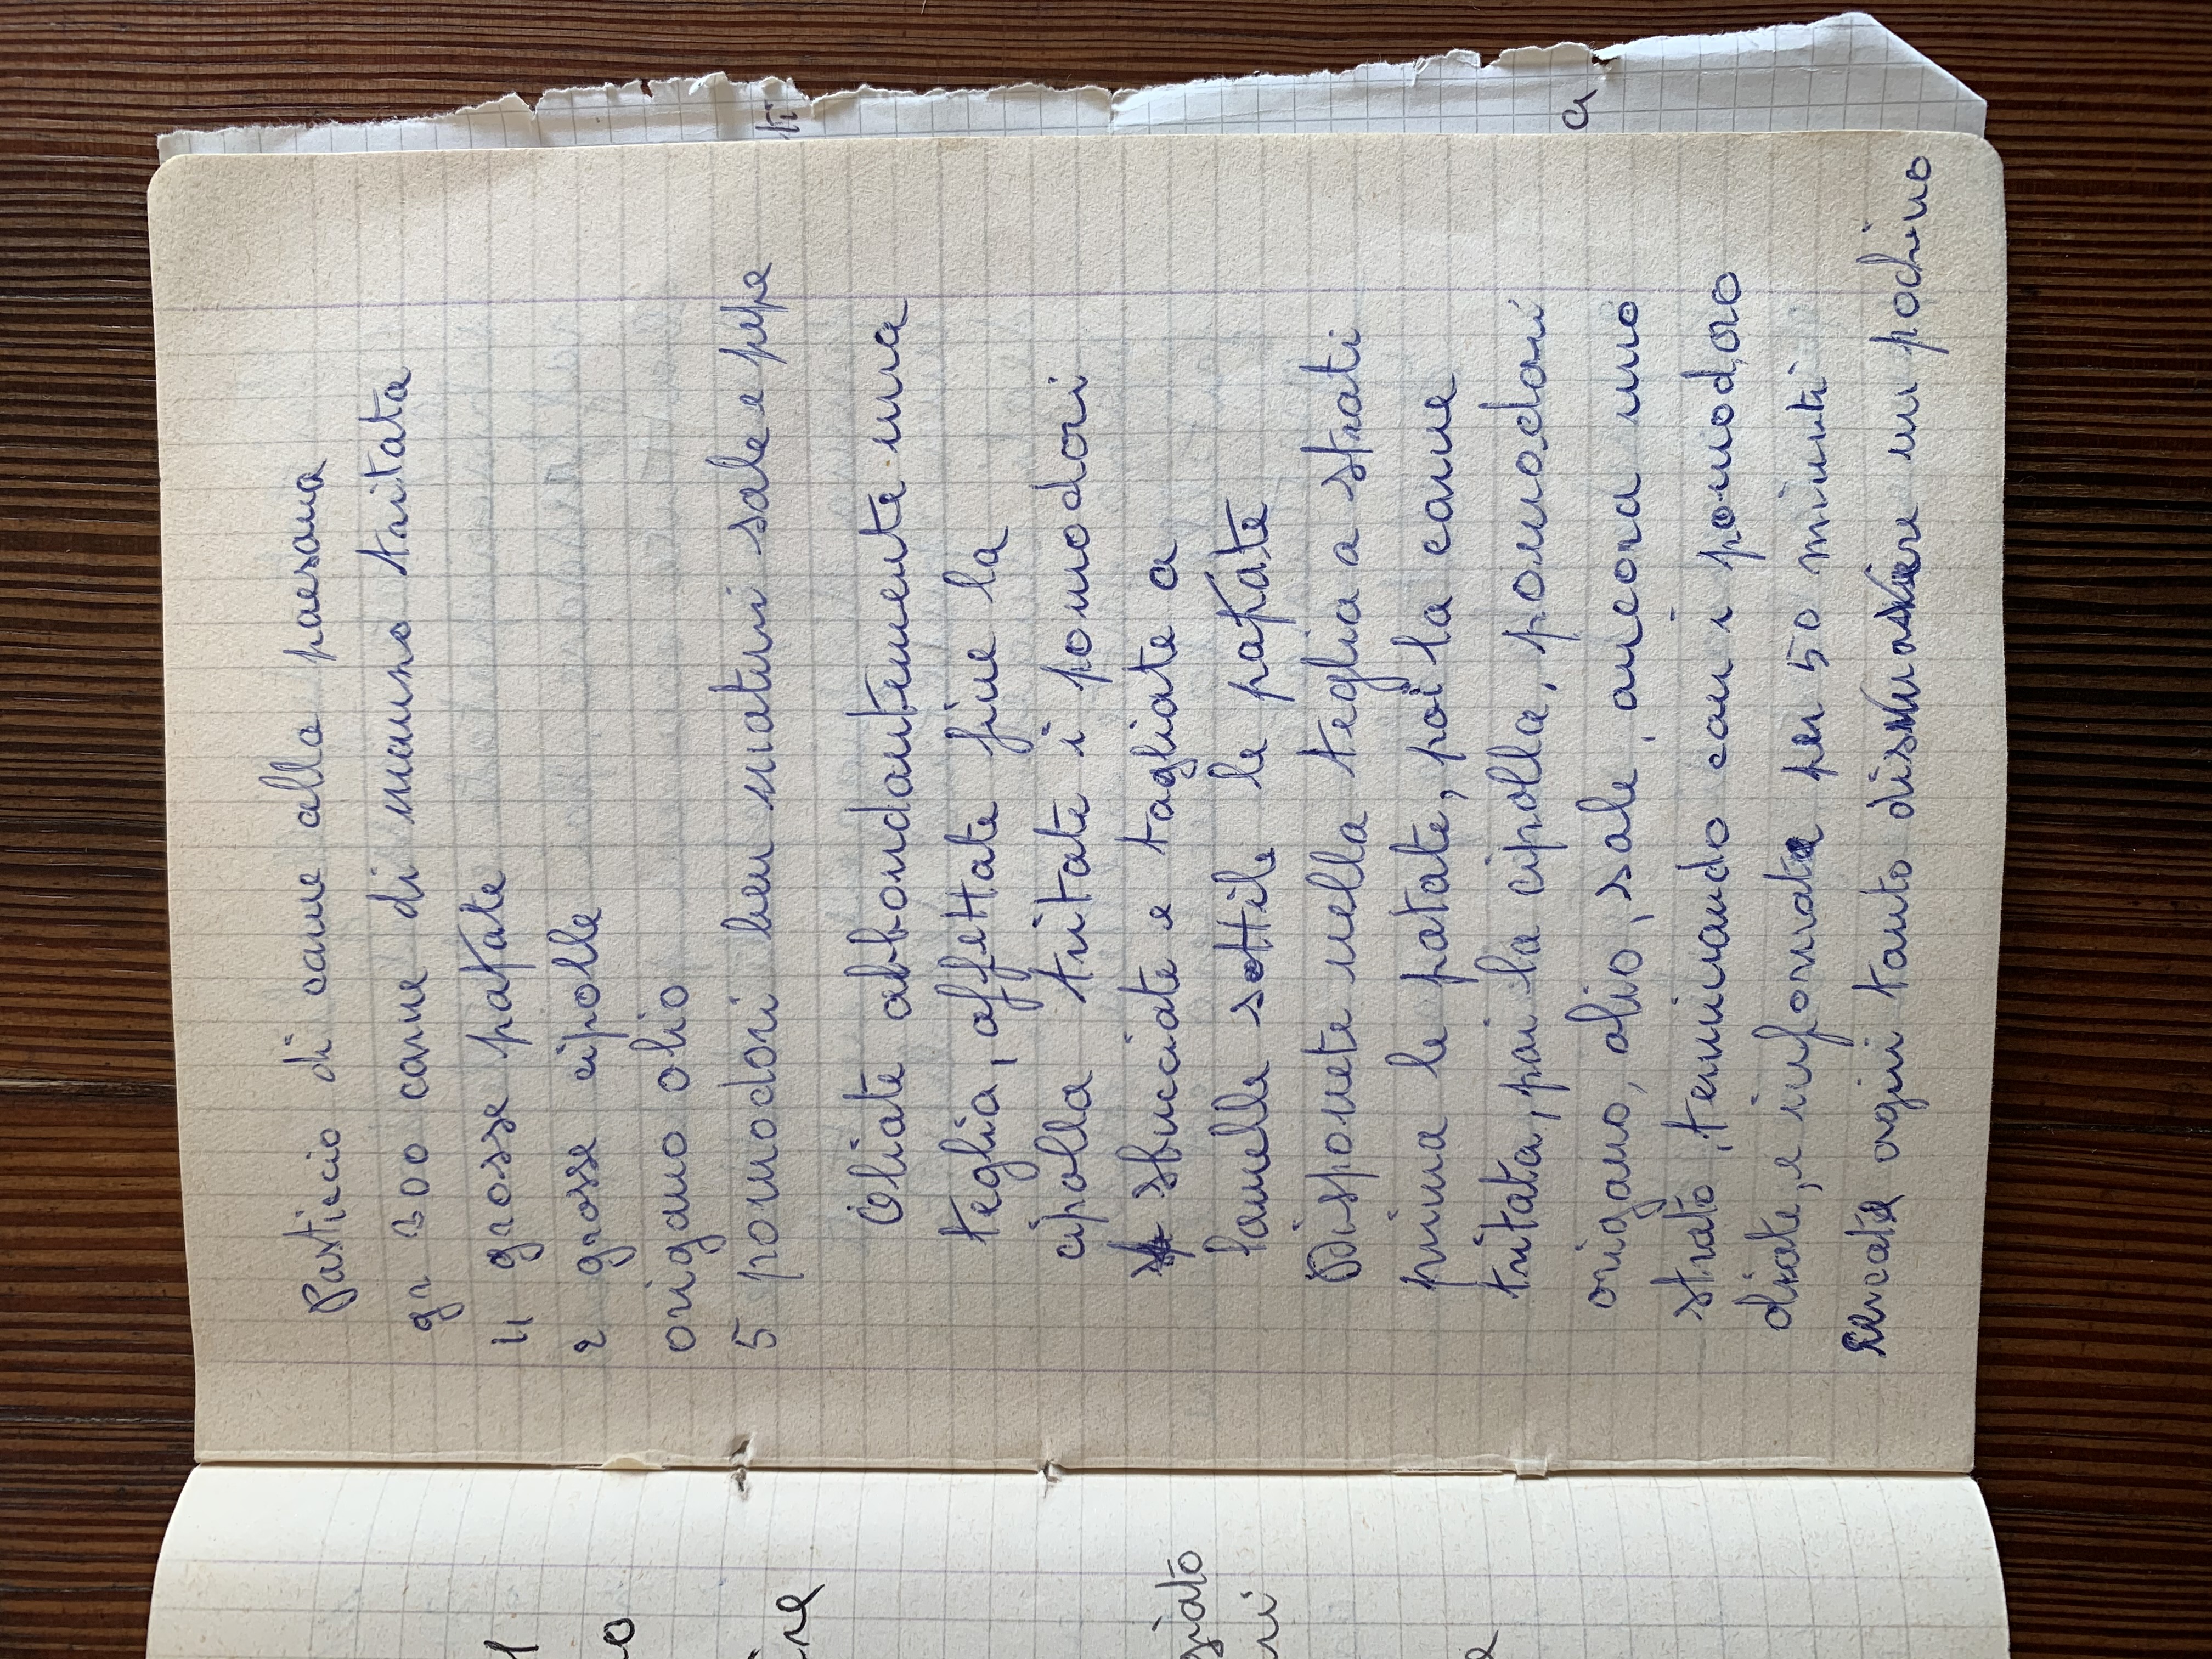 Pasticcio di carne alla paesana
gr 300 carne di manzo tritata
4 grosse patate
2 grosse cipolle
origano olio
5 pomodori ben maturi sale e pepe
Oliate abbondantemente una
teglia, affettate fine la
cipolla tritate i pomodori
sbucciate e tagliate a
lamelle sottile le patate
Disponete nella teglia a strati
prima le patate, poi la carne
tritata, poi la cipolla, pomodori
origano, olio, sale, ancora uno
strato, terminando con i pomodoro
oliate, e infornate per 50 minuti
cercate ogni tanto di smuovere un pochino